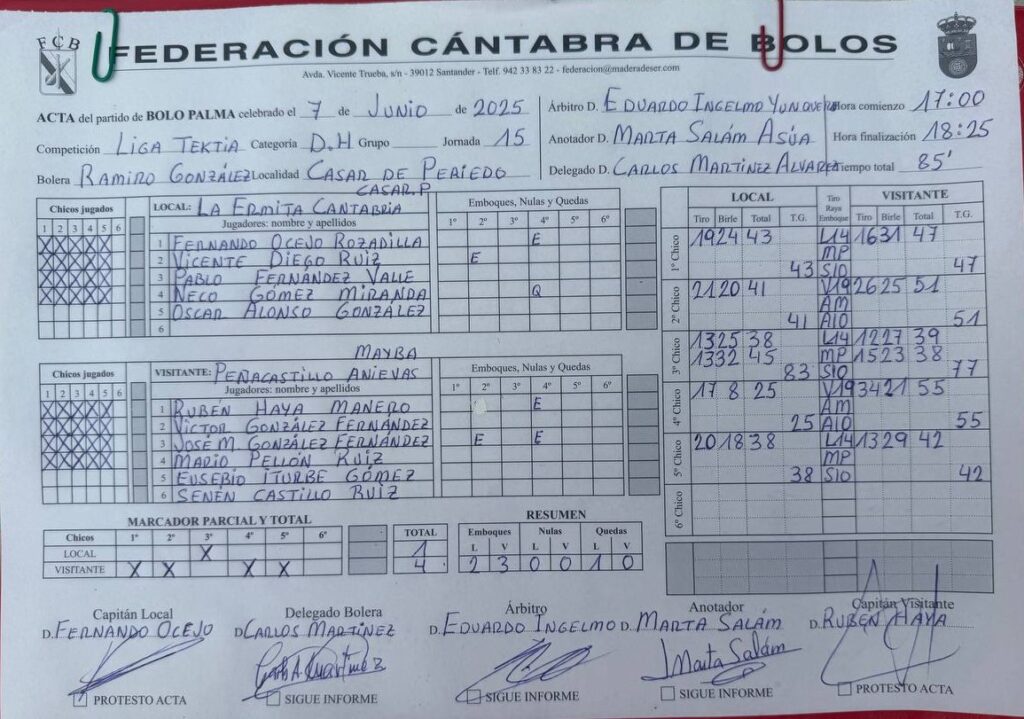 FCB
FEDERACIÓN CÁNTABRA DE BOLOS
Avda. Vicente Trueba, s/n - 39012 Santander - Telf. 942 33 83 22 - federacion@maderadeser.com
ACTA del partido de BOLO PALMA celebrado el 7 de JUNIO de 2025
Competición LIGA TEKTIA Categoría D.H Grupo Jornada 15
Bolera RAMIRO GONZÁLEZ Localidad CASAR DE PERIEDO
Árbitro D. EDUARDO INGELMO YUNQUERA Hora comienzo 17:00
Anotador D. MARTA SALÁM ASÚA Hora finalización 18:25
Delegado D. CARLOS MARTÍNEZ ALVAREZ Tiempo total 85'
CASAR.P
Chicos jugados LOCAL: LA ERMITA CANTABRIA Emboques, Nulas y Quedas
1 2 3 4 5 6 Jugadores: nombre y apellidos 1º 2º 3º 4º 5º 6º
X X X X X 1 FERNANDO OCEJO ROZADILLA E
X X X X X 2 VICENTE DIEGO RUIZ E
X X X X X 3 PABLO FERNÁNDEZ VALLE
X X X X X 4 NECO GÓMEZ MIRANDA Q
5 OSCAR ALONSO GONZÁLEZ
6
MAYBA
Chicos jugados VISITANTE: PEÑACASTILLO ANIEVAS Emboques, Nulas y Quedas
1 2 3 4 5 6 Jugadores: nombre y apellidos 1º 2º 3º 4º 5º 6º
X X X X X 1 RUBÉN HAYA MANERO E
X X X X X 2 VÍCTOR GONZÁLEZ FERNÁNDEZ
X X X X X 3 JOSÉ M. GONZÁLEZ FERNÁNDEZ E E
X X X X X 4 MARIO PELLÓN RUIZ
5 EUSEBIO ITURBE GÓMEZ
6 SENÉN CASTILLO RUIZ
LOCAL Tiro Raya Emboque VISITANTE
Tiro Birle Total T.G. Tiro Birle Total T.G.
1º Chico 19 24 43 L14 16 31 47
MP
43 S10 47
2º Chico 21 20 41 V19 26 25 51
AM
41 A10 51
3º Chico 13 25 38 L14 12 27 39
13 32 45 MP 15 23 38
83 S10 77
4º Chico 17 8 25 V19 34 21 55
AM
25 A10 55
5º Chico 20 18 38 L14 13 29 42
MP
38 S10 42
6º Chico
MARCADOR PARCIAL Y TOTAL
Chicos 1º 2º 3º 4º 5º 6º TOTAL
LOCAL X 1
VISITANTE X X X X 4
RESUMEN
Emboques Nulas Quedas
L V L V L V
2 3 0 0 1 0
Capitán Local Delegado Bolera Árbitro Anotador Capitán Visitante
D. FERNANDO OCEJO D. CARLOS MARTÍNEZ D. EDUARDO INGELMO D. MARTA SALÁM D. RUBÉN HAYA
Marta Salám
PROTESTO ACTA SIGUE INFORME SIGUE INFORME SIGUE INFORME PROTESTO ACTA